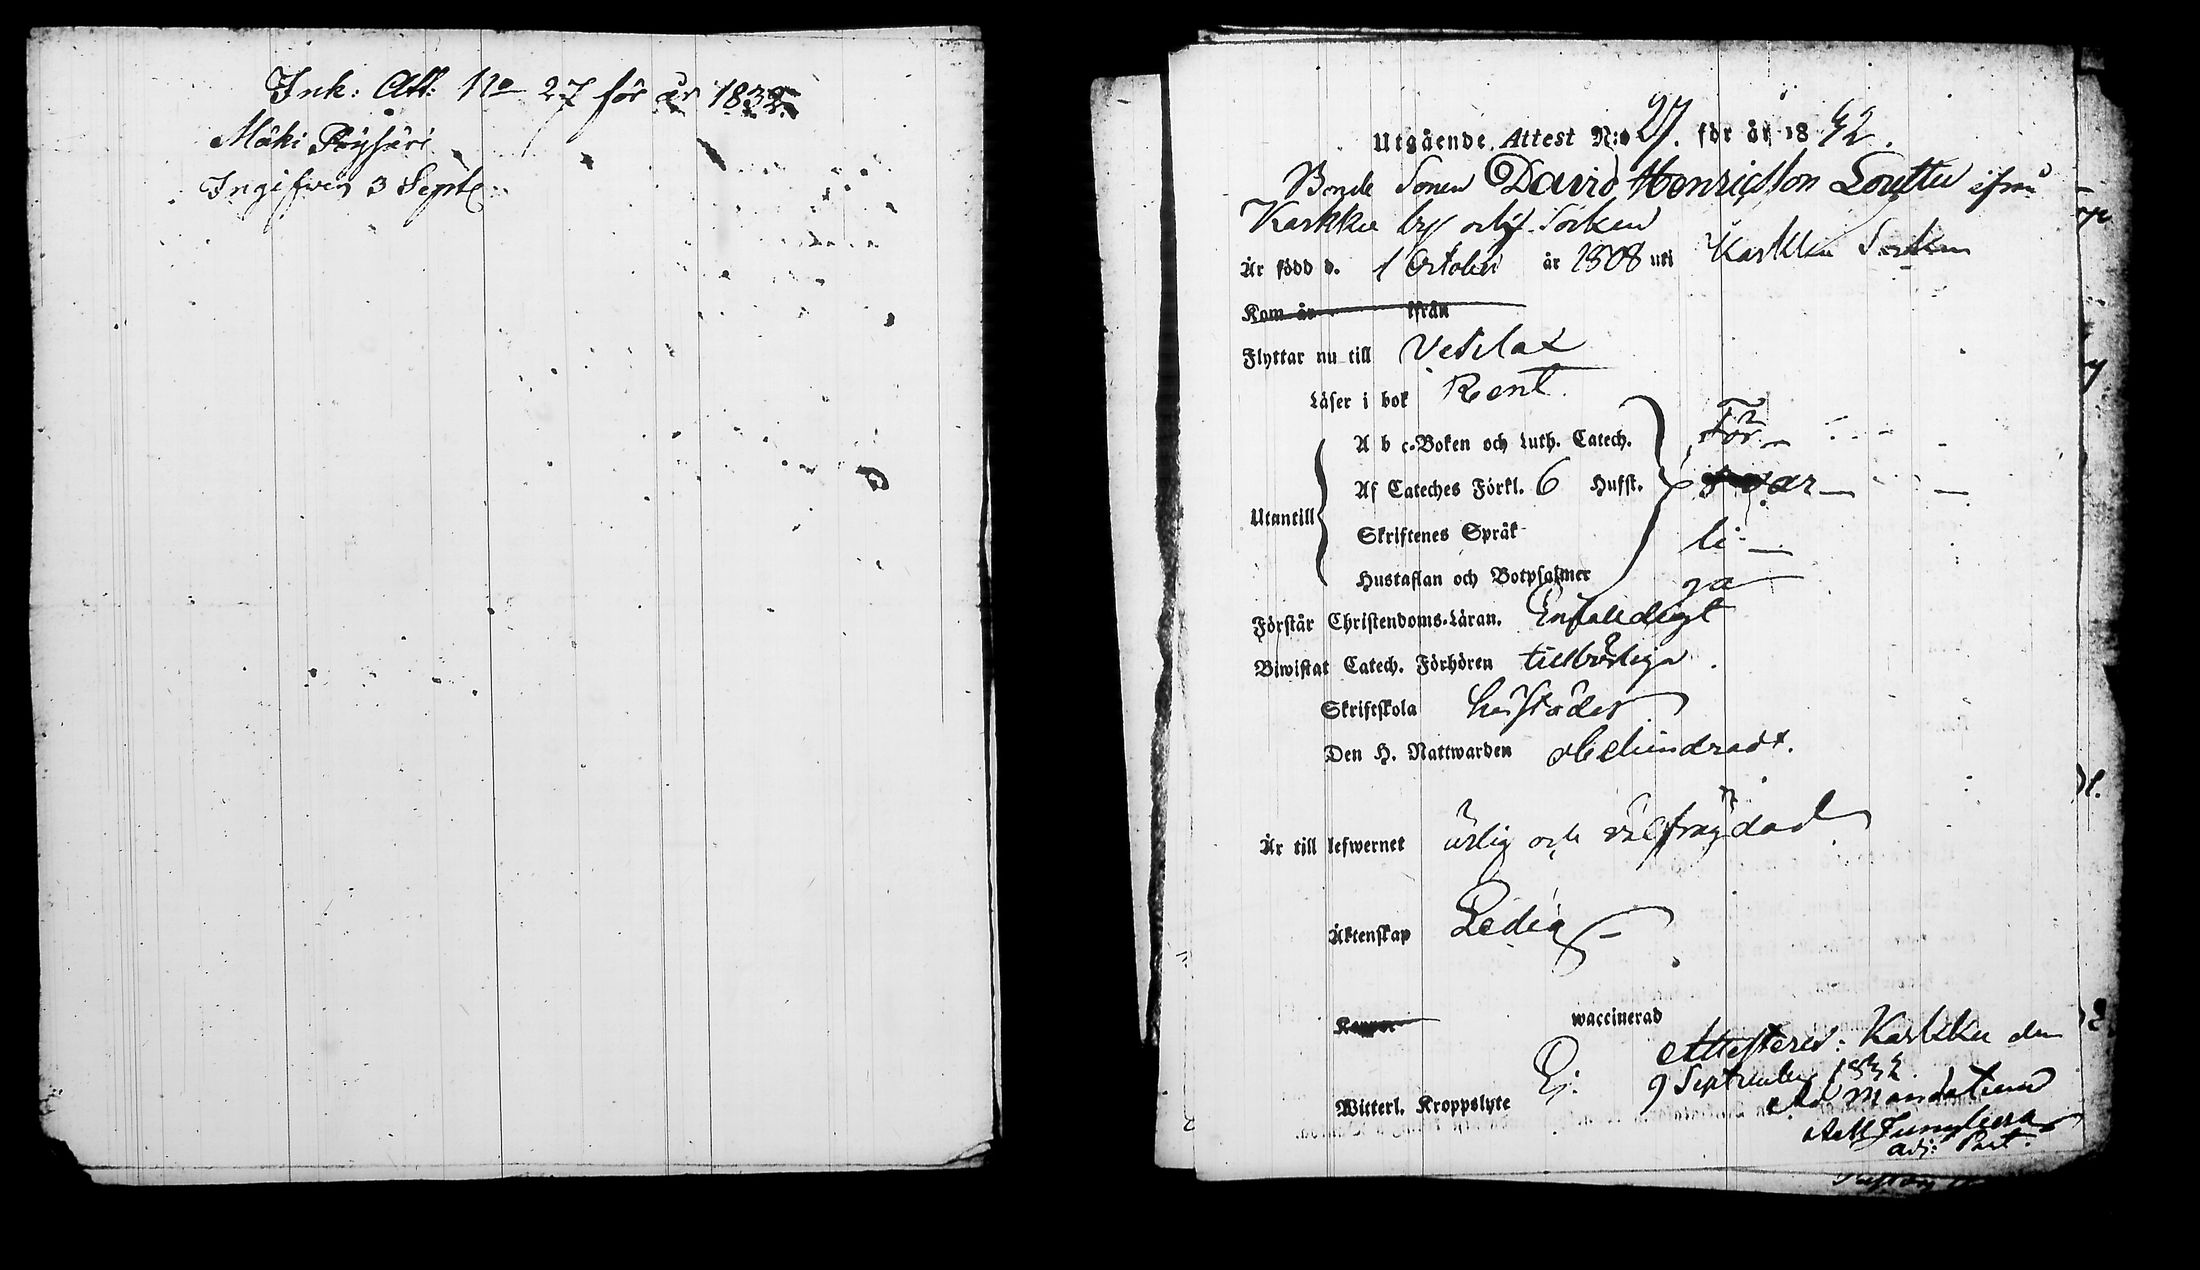 Ink: Att: No 27 för år 1832.
Mäki Röyhäri
Ingifven 3 Sept.
Utgående Attest N:o 27. för år 1832.
Bonde Sonen David Henricsson ifrån
Karkku by och Socken
Är född d. 1 October år 1808 uti Karkku Socken
Kom år ifrån
Flyttar nu till Vesilax
Läser i bok Rent.
A b c-Boken och Luth. Catech. För
Af Cateches Förkl. 6 Hufst. svar
Utantill
Skriftenes Språk li
Hustaflan och Botpsalmer ga
Förstår Christendoms-Läran. Enfaldigt
Biwistat Catech. Förhören tillbörliga.
Skriftskola
Den H. Nattwarden obehindradt.
Är till lefwernet ärlig och välfrägdad
Äktenskap Ledig
Koppor waccinerad
Attesterar: Karkku den
Witterl. Kroppslyte Ej. 9 September 1832
Ad Mandatum
adj: Past.